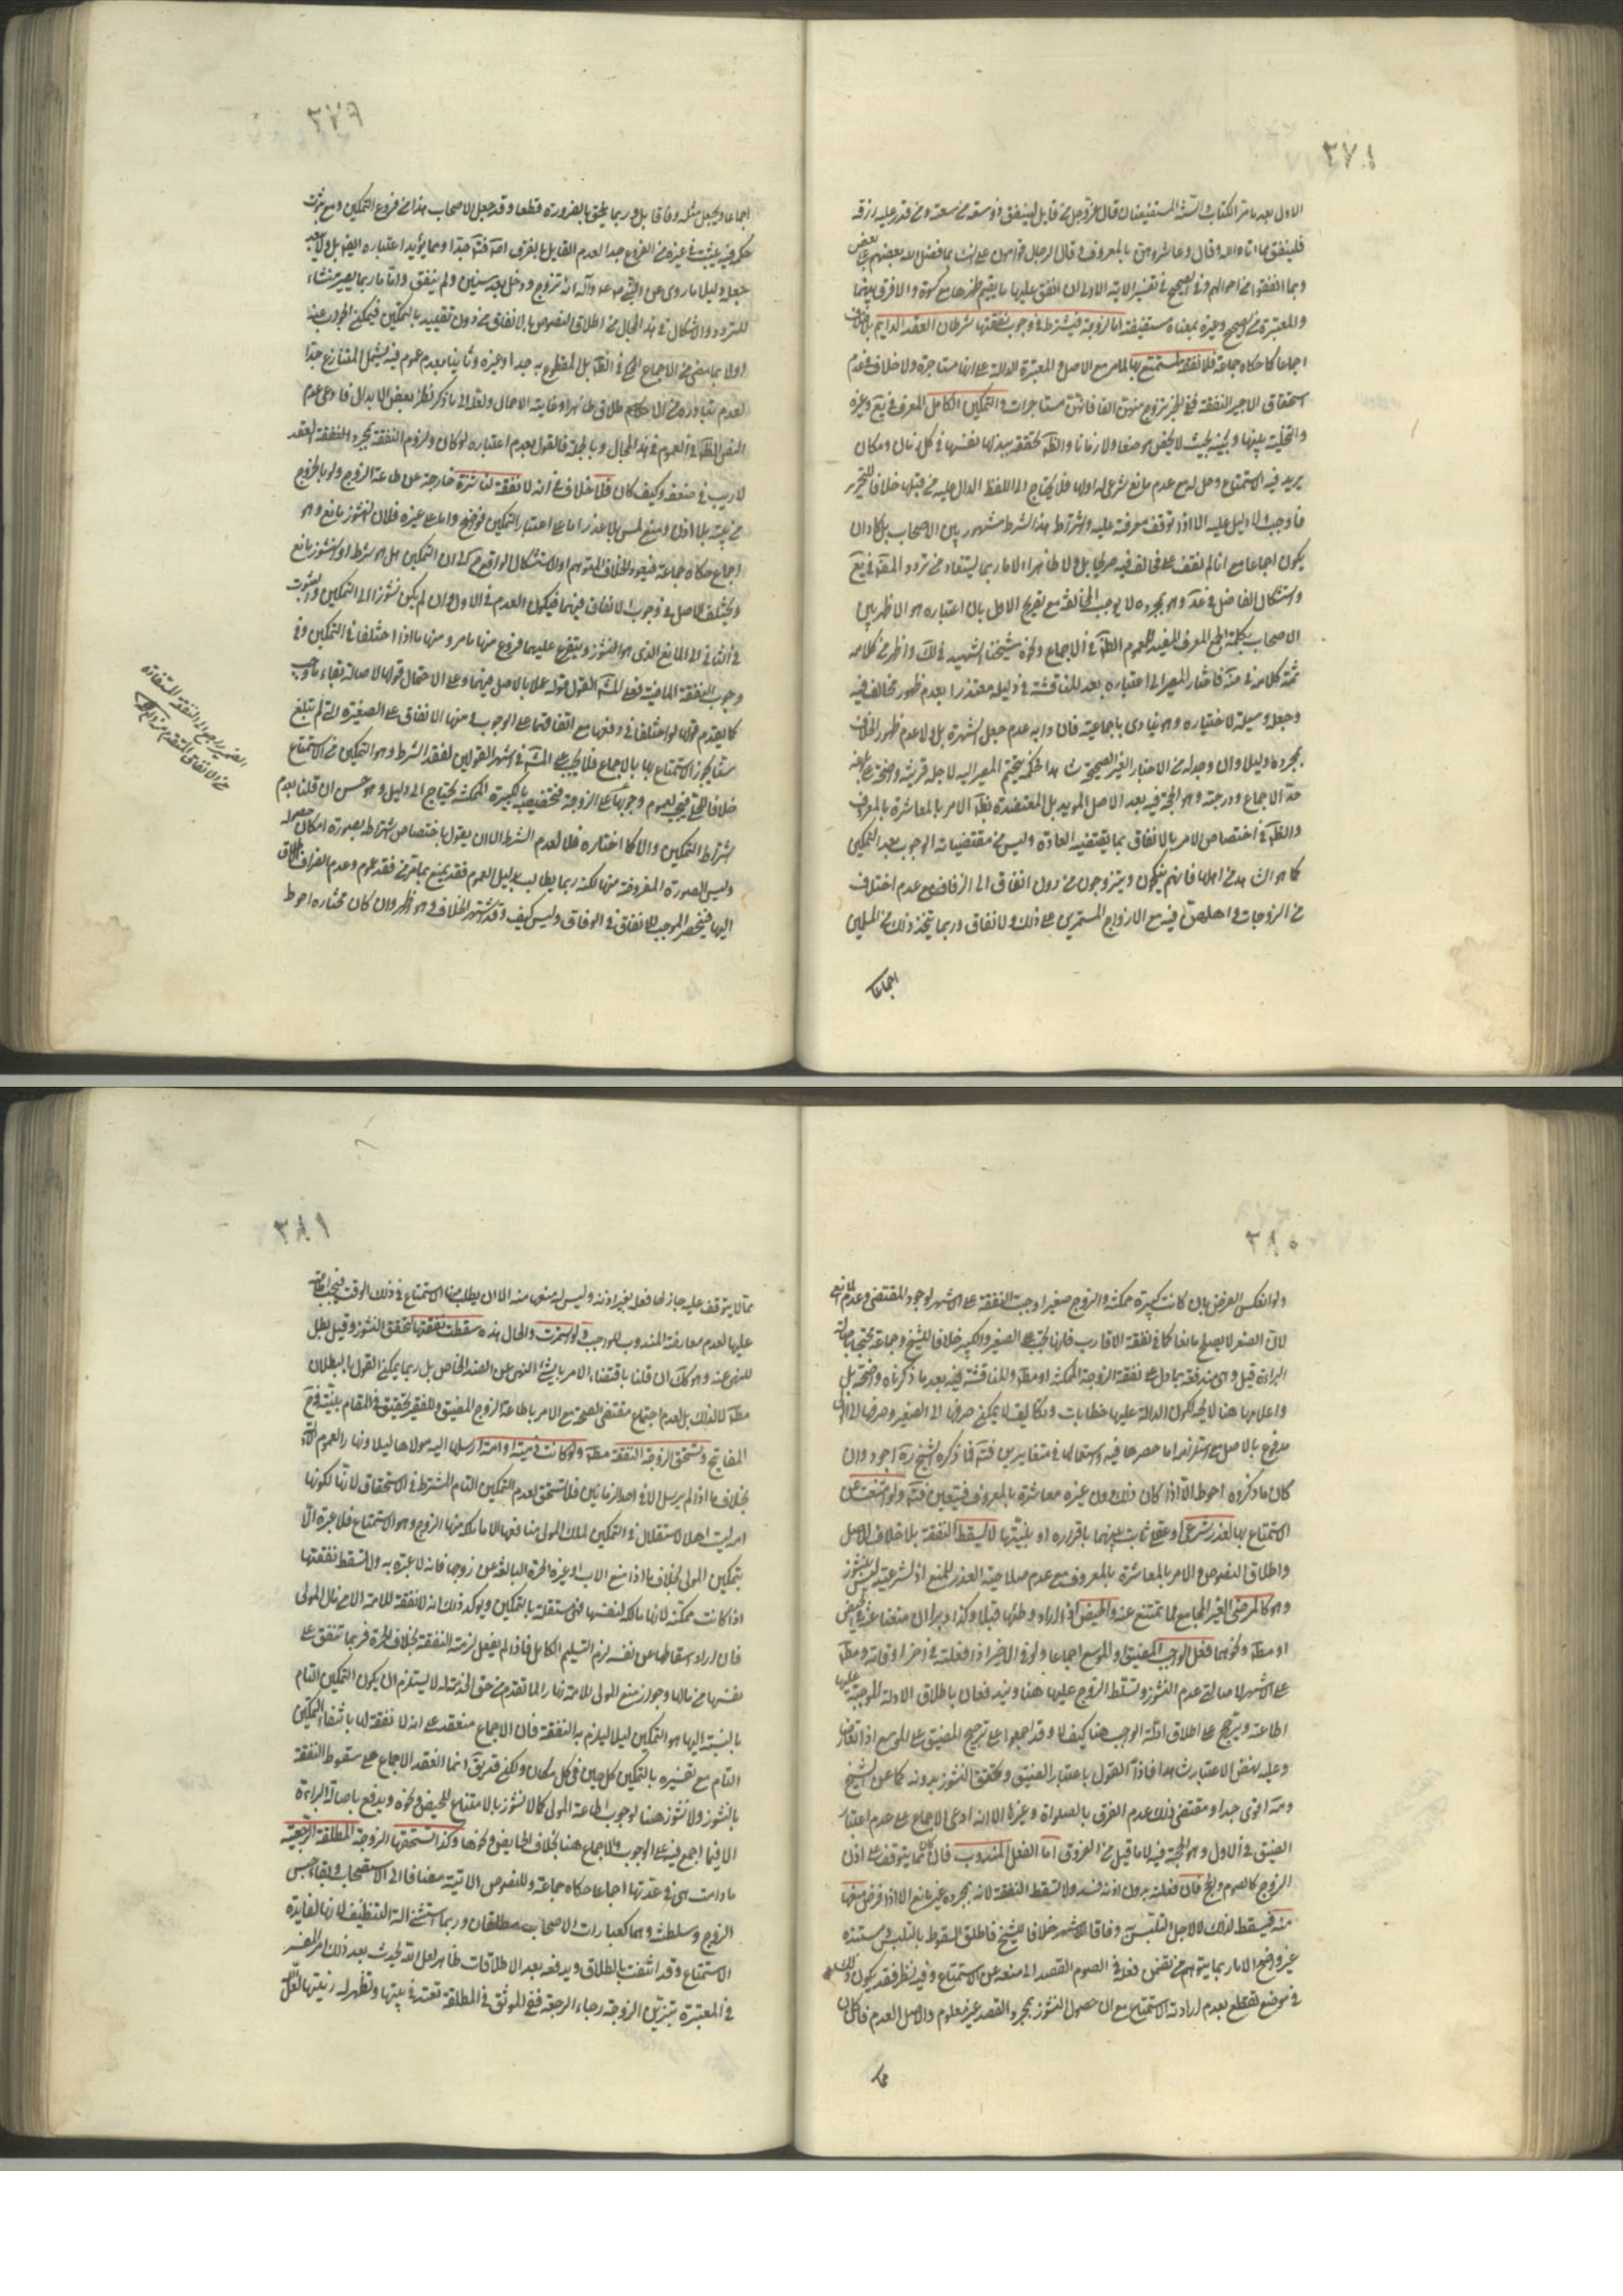 ٣٧٨
الاول بعد ما مر الكتاب والسنة المستفيضان قال عز وجل من قايل لينفق ذو سعة من سعته ومن قدر عليه رزقه
فلينفق مما اتاه الله وقال وعاشروهن بالمعروف وقال الرجال قوامون على النساء بما فضل الله بعضهم على بعض
وبما انفقوا من اموالهم وفي الصحيح في تفسير الاية الاولى ان انفق عليها ما يقيم ظهرها مع كسوة والا فرق بينهما
والمعتبرة من الصحيح وغيره بمعناه مستفيضة اما الزوجة فيشترط في وجوب نفقتها شرطان العقد الدايم بلا خلاف
اجماعا كما حكاه جماعة فلا نفقة لمستمتع بها لما مر مع الاصل والمعتبرة الدالة على انها مستاجرة ولا خلاف في عدم
استحقاق الاجير النفقة ففي الخبر تزوج منهن الفا فانهن مستاجرات والتمكين الكامل المعرف في يع وغيره
والتخلية بينها وبينه بحيث لا يخص موضعا ولا زمانا والظ تحققه ببذلها نفسها في كل زمان ومكان
يريد فيه الاستمتاع وحل له مع عدم مانع شرعي له او لها فلا يحتاج الى اللفظ الدال عليه من قبلها خلافا للتحرير
فاوجبه ولا دليل عليه الا اذا توقف معرفته عليه واشتراط هذا الشرط مشهور بين الاصحاب بل كاد ان
يكون اجماعا مع انا لم نقف على مخالف فيه صريحا بل ولا ظاهرا الا ما ربما يستفاد من تردد المص في يع
واستشكال الفاضل في عد وهو بمجرده لا يوجب المخالفة مع تصريح الاول بان اعتباره هو الاظهر بين
الاصحاب بكلمة الجمع المعرف المفيد للعموم الظ في الاجماع ونحوه شيخنا الشهيد في لك واظهر من كلامه
ثمة كلامه في ضه فاختار المصير الى اعتباره بعد المناقشة في دليله معتذرا بعدم ظهور مخالف فيه
وجعله وسيلة لاختياره وهو ينادي باجماعيته فان دابه عدم جعل الشهرة بل ولا عدم ظهور الخلاف
بمجرده دليلا وان وجد له من الاخبار الغير الصحيحة شاهدا
حد الاجماع ودرجته وهو الحجة فيه بعد الاصل المؤيد بل المعتضدة بظ الامر بالمعاشرة بالمعروف
والظ في اختصاص الامر بالانفاق بما يقتضيه العادة وليس من مقتضيات الوجوب بعد التمكين
كما هو المشاهد من اهلها فانهم ينكحون ويتزوجون من دون انفاق الى الزفاف مع عدم اختلاف
من الزوجات واهلهن فيه مع الازواج المستمرين على ذلك ولا انفاق وربما يتخذ ذلك من المسلمين
اجماعا
٣٧٩
اجماعا ويجعل مثله وفاقا بل وربما يلحق بالضرورة قطعا وقد جعل الاصحاب هذا من فروع التمكين ومع ثبوت
حكم فيه يثبت في غيره من الفروع جدا لعدم القايل بالفرق اصلا فت جدا ومما يؤيد اعتباره ايضا بل ولا يبعد
جعله دليلا ما روى عن النبي صلى الله عليه واله انه تزوج ودخل بعد سنين ولم ينفق واما ما ربما يصير منشاء
للتردد والاشكال في هذا المجال من اطلاق النصوص بالانفاق من دون تقييد بالتمكين فيمكن الجواب عنه
اولا بما مضى من الاجماع المحكي في الظ بل المقطوع به جدا وغيره وثانيا بعدم عموم فيه يشمل المتنازع جدا
النص الظ في العموم في هذا المجال وبالجملة فالقول بعدم اعتباره لو كان ولزوم النفقة بمجرد العقد
لا ريب في ضعفه وكيف كان فلا خلاف في انه لا نفقة لناشزة خارجة عن طاعة الزوج ولو بالخروج
من بيته بلا اذن ومنع لمس بلا عذر اما على اعتبار التمكين فواضح واما على غيره فلان النشوز مانع وهو
اجماع حكاه جماعة فيعود الخلاف المتوهم او الاستشكال الواقع الى ان التمكين هل هو شرط او النشوز مانع
ويختلف الاصل في وجوب الانفاق فيهما فيكون العدم في الاول وان لم يكن نشوزا الى التمكين والثبوت
في الثاني الى المانع الذي هو النشوز ويتفرع عليهما فروع منها ما مر ومنها ما اذا اختلفا في التمكين وفي
وجوب النفقة الماضية فعلى المش القول قوله عملا بالاصل فيهما وعلى الاحتمال قولها لاصالة بقاء ما وجب
كما يقدم قولها لو اختلفا في دفعها مع اتفاقهما على الوجوب ومنها الانفاق على الصغيرة التي لم تبلغ
سنا يجوز الاستمتاع بها بالاجماع فلا يجب على المش في اشهر القولين لفقد الشرط وهو التمكين من الاستمتاع
خلافا للحلي فيجب لعموم وجوبها على الزوجة فتخصيصه بالكبيرة الممكنة يحتاج الى دليل وهو حسن ان قلنا بعدم
اشتراط التمكين والا كما اختاره فلا لعدم الشرط الا ان يقول باختصاص اشتراطه بصورة امكان حصوله
وليس الصورة المفروضة منها لكنه ربما يطالب بدليل العموم فقد يمنع بما مر من فقد عموم وعدم انصراف الاطلاق
اليها فينحصر الموجب للانفاق في الوفاق وليس كيف وقد اشتهر الخلاف وهو اظهر وان كان مختاره احوط
الضمير راجع الى النفقة المستفادة
من الانفاق المتقدم
٣٨٠
ولو انعكس الفرض بان كانت كبيرة ممكنة والزوج صغيرا وجبت النفقة على الاشهر لوجود المقتضي وعدم المانع
لان الصغر لا يصلح مانعا كما في نفقة الاقارب فانها تجب على الصغير والكبير خلافا للشيخ وجماعة محتجا باصالة
البراءة قيل وهي مندفعة بما دل على نفقة الزوجة الممكنة او مط وللمناقشة فيه بعد ما ذكرناه واضحة بل
واعمالها هنا لا يجه لكون الدالة عليها خطابات وتكاليف لا يمكن صرفها الى الصغير وصرفها الى الولي
مدفوع بالاصل مع استلزامه اما حصرها فيه واستعمالها في متغايرين فت فما ذكره الشيخ ره اجود وان
كان ما ذكروه احوط الا اذا كان ذلك دون غيره معاشرة بالمعروف فيتعين فت ولو امتنعت عن
الاستمتاع بها لعذر شرعي او عقلي ثابت بينهما باقراره او ببينتها لا يسقط النفقة بلا خلاف للاصل
واطلاق النصوص والامر بالمعاشرة بالمعروف مع عدم صلاحية العذر للمنع اذ لشرعيته ليس بنشوز
وهو كالمرض الغير المجامع لها تمتنع عنه والحيض اذا اراد وطئها قبلا وكذا دبرا ان منعنا عنه في الحيض
او مط ونحوهما فعل الواجب المضيق او الموسع اجماعا ولو في الاخير اذا فعلته في اخر اوقاته ومط
على الاشهر لاصالتي عدم النشوز وتسلط الزوج عليها هنا ويندفعان باطلاق الادلة الموجبة عليها
اطاعته ويترجح على اطلاق ادلة الوجوب هنا كيف لا وقد اجمعوا على ترجيح المضيق على الموسع اذا تعارضا
وعليه بعض الاعتبار شاهدا فاذا القول باعتبار الضيق وتحقق النشوز بدونه كما عن الشيخ
ومه اقوى جدا ومقتضى ذلك عدم الفرق بالصلواة وغيرها الا انه ادعي الاجماع على عدم اعتبار
الضيق في الاول وهو الحجة فيه لا ما قيل من الفروق اما الفعل المندوب فان كان مما يتوقف على اذن
الزوج كالصوم والحج فان فعلته بدون اذنه فسد ولا تسقط النفقة لانه بمجرده غير مانع الا اذا فرض منعها
منه فيسقط لذلك لا لاجل التلبس وفاقا للاشهر خلافا للشيخ فاطلق السقوط بالتلبس ومستنده
غير واضح الا ما ربما يتوهم من تضمن فعله في الصوم القصد الى منعه عن الاستمتاع وفيه نظر فقد يكون ذلك
في موضع تقطع بعدم ارادته الاستمتاع مع ان حصول النشوز بمجرد القصد غير معلوم والاصل العدم وان كان
مما
٣٨١
مما لا يتوقف عليه جاز لها فعله بغير اذنه وليس له منعها منه الا ان يطلب منها الاستمتاع في ذلك الوقت فيجب اطاعته
عليها لعدم معارضة المندوب للواجب فلو استمرت والحال هذه سقطت نفقتها لتحقق النشوز وقيل بطل
للنهي عنه وهو كك ان قلنا باقتضاء الامر بالشئ النهي عن الضد الخاص بل ربما يمكن القول بالبطلان
مط لا لذلك بل لعدم اجتماع مقتضى الصحة مع الامر باطاعة الزوج المضيق وللفقير تحقيق في المقام بينته في ح
المفاتيح وتستحق الزوجة النفقة مط ولو كانت ذمية او امة ارسلها اليه مولاها ليلا ونهارا لعموم الادلة
بخلاف ما اذا لم يرسل الا في احد الزمانين فلا تستحق لعدم التمكين التام المشترط في الاستحقاق لانها لكونها
امة ليست اهلا لاستقلال في التمكين لملك المولى منافعها الا ما ملكه منها الزوج وهو الاستمتاع فلا عبرة الا
بتمكين المولى بخلاف ما اذا منع الاب او غيره الحرة البالغة عن زوجها فانه لا عبرة به ولا تسقط نفقتها
اذا كانت ممكنة لانها مالكة لنفسها فهي مستقلة بالتمكين ويؤكد ذلك انه لا نفقة للامة الا من مال المولى
فان اراد اسقاطها عن نفسه لزم التسليم الكامل فاذا لم يفعل لزمته النفقة بخلاف الحرة فربما تنفق على
نفسها من مالها وجواز منع المولى للامة نهارا لما تقدم من حق الخدمة له لا يستلزم ان يكون التمكين التام
بالنسبة اليها هو التمكين ليلا ليلزم به النفقة فان الاجماع منعقد على انه لا نفقة لها بانتفاء التمكين
التام مع تفسيره بالتمكين كل حين في كل مكان ولكن قد يق انما انعقد الاجماع على سقوط النفقة
بالنشوز ولا نشوز هنا لوجوب اطاعة المولى كما لا نشوز بالامتناع للحيض ونحوه ويدفع باصالة البراءة
الا فيما اجمع فيه على الوجوب ولا اجماع هنا بخلاف الحايض ونحوها وكذا تستحقها الزوجة المطلقة الرجعية
ما دامت هي في عدتها اجماعا حكاه جماعة وللنصوص الاتية مضافا الى الاستصحاب وبقاء حبس
الزوج وسلطنته وهما كعبارات الاصحاب مطلقان وربما استثني الة التنظيف لانها لفايدة
الاستمتاع وقد انتفت بالطلاق ويدفعه بعد الاطلاقات ظاهر لعل الله يحدث بعد ذلك امرا المفسر
في المعتبرة بتزين الزوجة رجاء الرجعة ففي الموثق في المطلقة تعتد في بيتها وتظهر له زينتها لعل